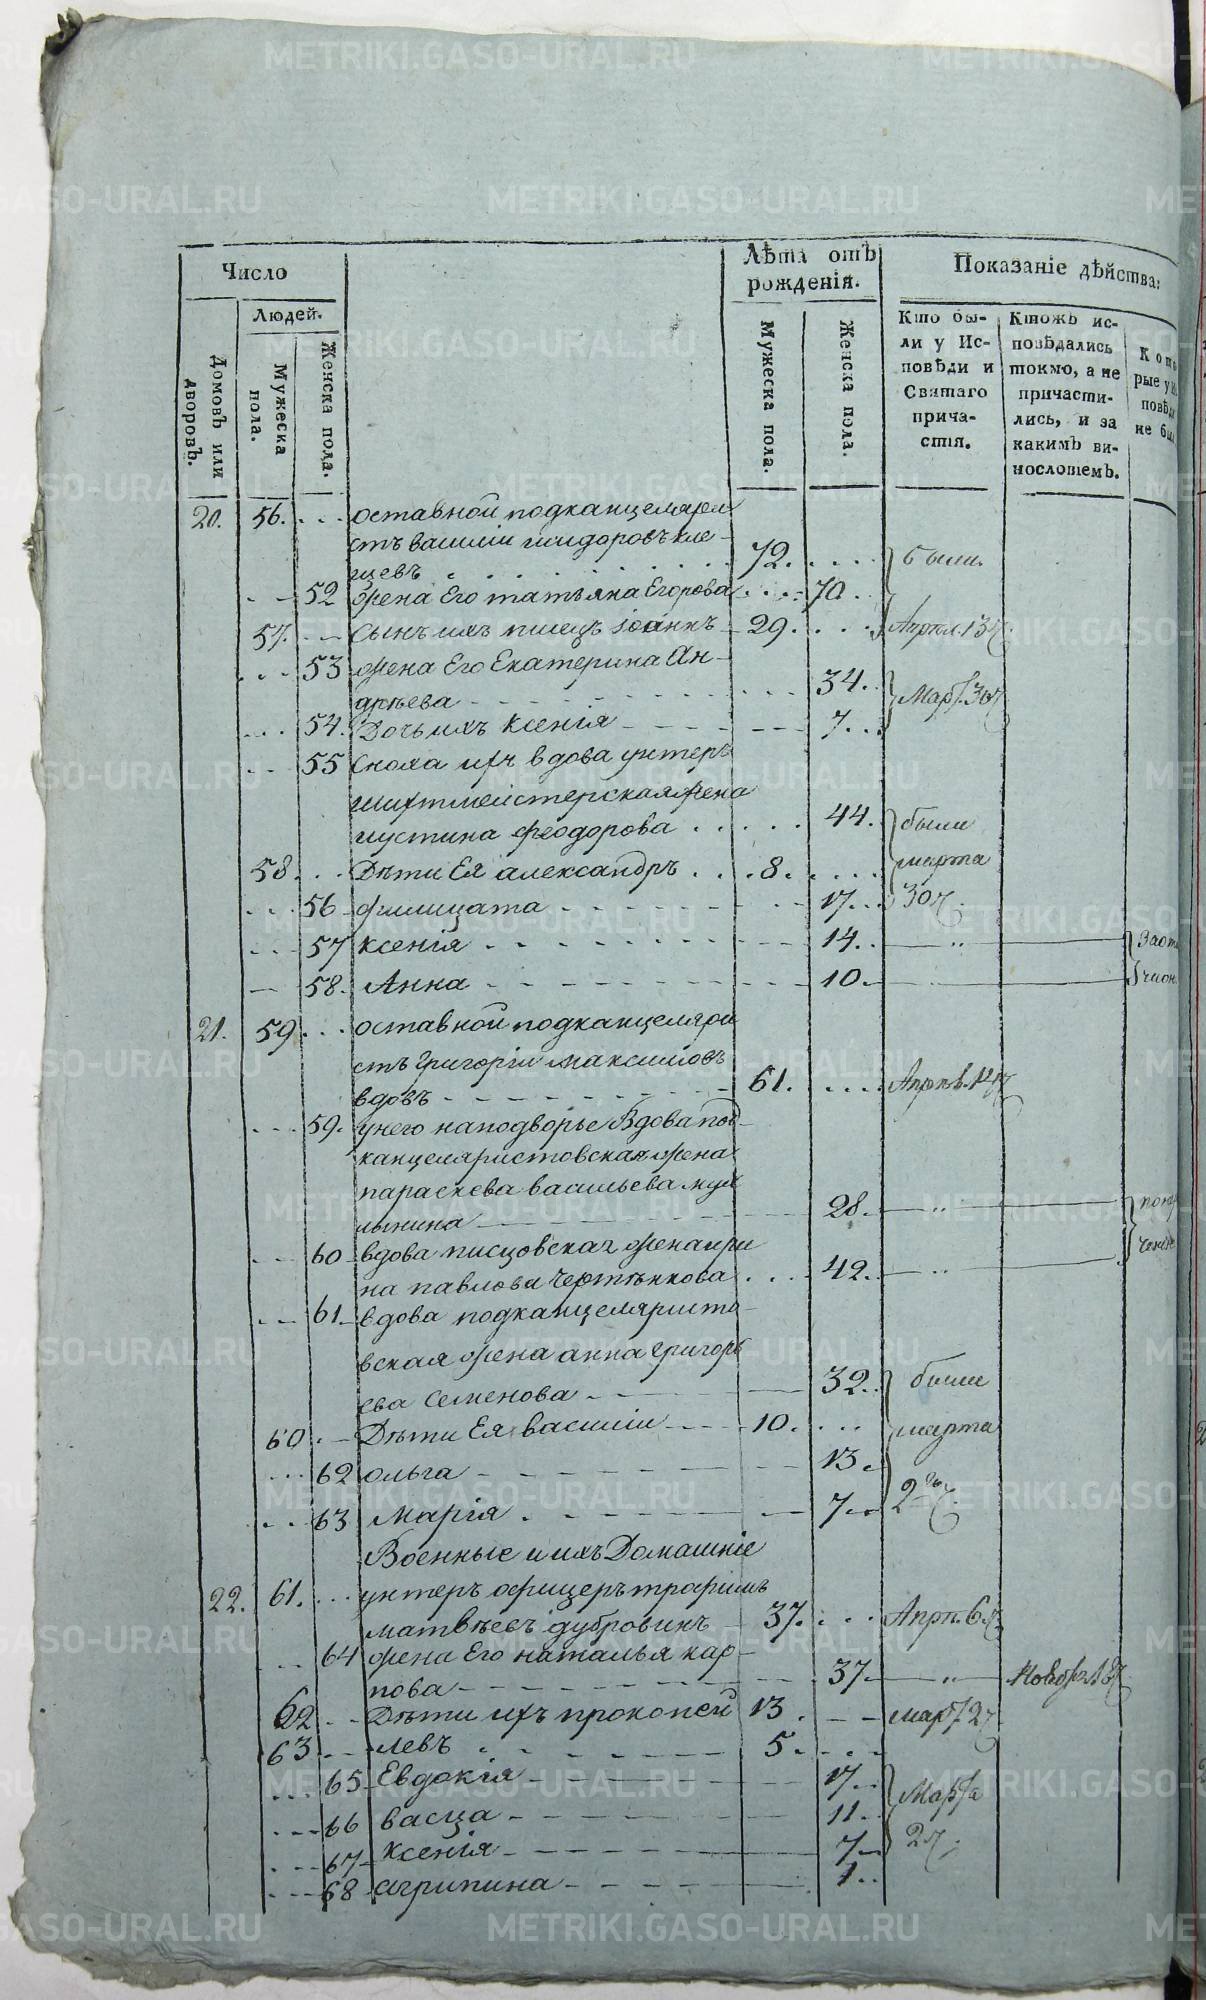 Число
Людей.
Домовъ или дворовъ.
Мужеска пола.
Женска пола.
Лѣта отъ рожденія.
Мужеска пола.
Женска пола.
Показаніе дѣйства:
Кто бы-
ли у Ис-
повѣди и
Святаго
прича-
стія.
Ктожъ ис-
повѣдались
токмо, а не
причасти-
лись, и за
какимъ ви-
нословіемъ.
Кото
рые у и
повѣд
не бы
20. 56. оставной подканцеляри
стъ василіи исидоровъ кле-
щевъ 72. были
52 жена Его татьяна Егорова 70
57. Сынъ ихъ писецъ іоаннъ 29. Апрѣл. 13 ч.
53 жена Его Екатерина Ан-
дрѣева 34. Март. 30 ч
54. Дочь ихъ Ксенія 7
55 Сноха ихъ вдова унтеръ
шихтмейстерская жена
иустина феодорова 44. были
58. Дѣти Ея александръ 8. марта
56 филицата 17 30 ч.
57 ксенія 14 За от
58. Анна 10
21. 59 оставной подканцеляри
стъ григоріи максимовъ
вдовъ 61. Апрѣл. 12 ч
59. у него на подворье Вдова под-
канцеляристовская жена
параскева васильева мул
лынина 28.
60 вдова писцовская жена ири
на павлова Чертѣнкова 42.
61. вдова подканцеляристо-
вская жена анна григорь
ева Семенова 32. были
60 Дѣти Ея василіи 10. марта
62 ольга 13
63 Марія 7 2
Военные и ихъ Домашніе
22. 61. унтеръ офицеръ трофимъ
матвѣевъ дубровинъ 37. Апрѣл. 6 ч.
64 жена Его наталья кар-
пова 37
62 Дѣти ихъ прокопей 13 март. 2 ч
63 левъ 5
65 Евдокія 17 Марта
66 васца 11 2 ч.
67 ксенія 7
68 агрипина 1